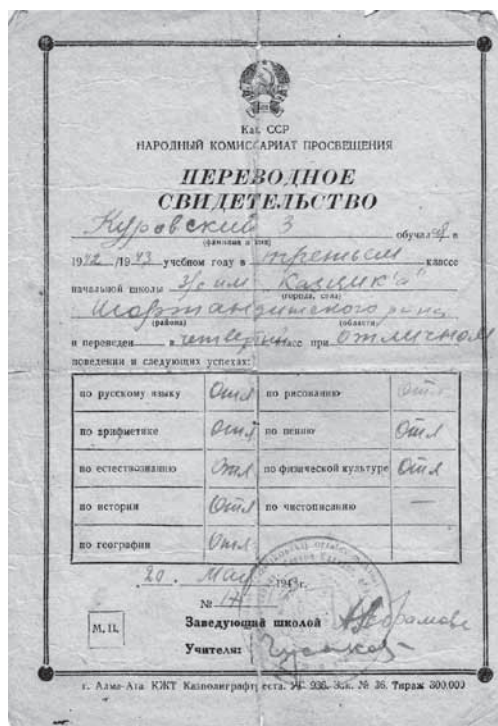 Каз. ССР
НАРОДНЫЙ КОМИССАРИАТ ПРОСВЕЩЕНИЯ
ПЕРЕВОДНОЕ
СВИДЕТЕЛЬСТВО
Куровский З обучался в
(фамилия и имя)
1942/1943 учебном году в третьем классе
начальной школы з/с им. "Кацик'а"
(города, села)
Шортандинского р-на
(района) (области)
и переведен в четвертый классе при отличном
поведении и следующих успехах:
по русскому языку Отл по рисованию Отл
по арифметике Отл по пению Отл
по естествознанию Отл по физической культуре Отл
по истории Отл по чистописанию —
по географии Отл
20. Мая 1943г.
№ 17
М.П. Заведующий школой Абрамова
Учителя:
г. Алма-Ата КЖТ Казполиграфтреста. УГ 936. Зак. № 36. Тираж 300.000